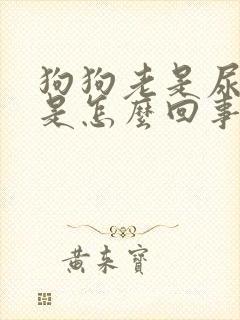 狗狗老是尿
是怎麼回事
黄来寶